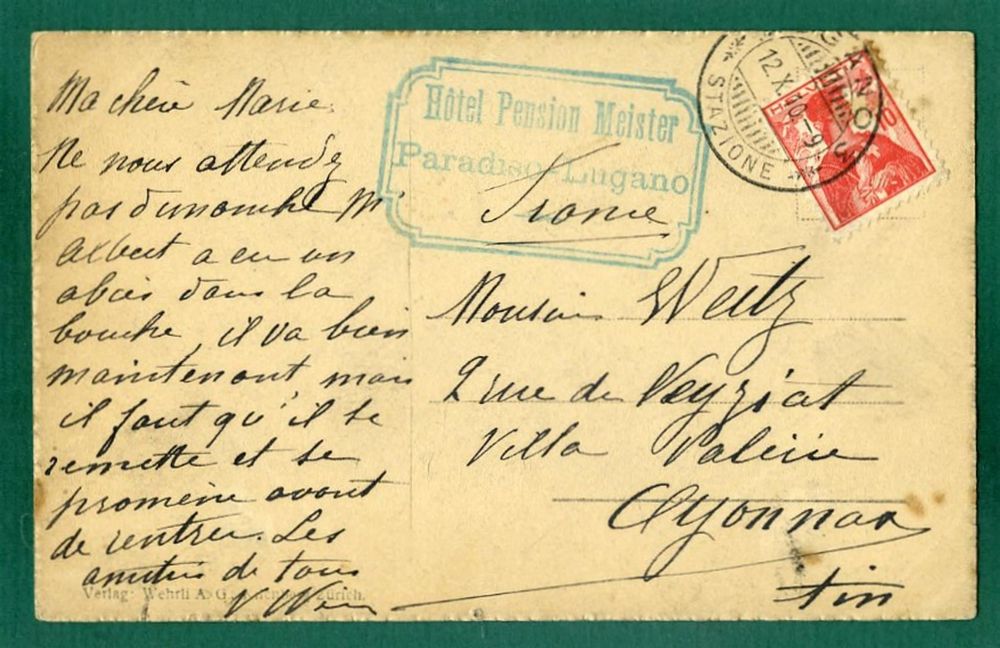 Ma chère Marie
Ne nous attendez
pas dimanche Mr
Albert a eu un
abcès dans la
bouche, il va bien
maintenant, mais
il faut qu'il se
remette et se
promène avant
de rentrer. Les
amitiés de tous
Verlag Wehrli A.G., Zürich.
Hôtel Pension Meister
Paradiso-Lugano
France
LUGANO
12.X.10.-9
STAZIONE
HELVETIA
10
Monsieur Weitz
2 rue de Veyziat
Villa Valérie
Oyonnax
Ain